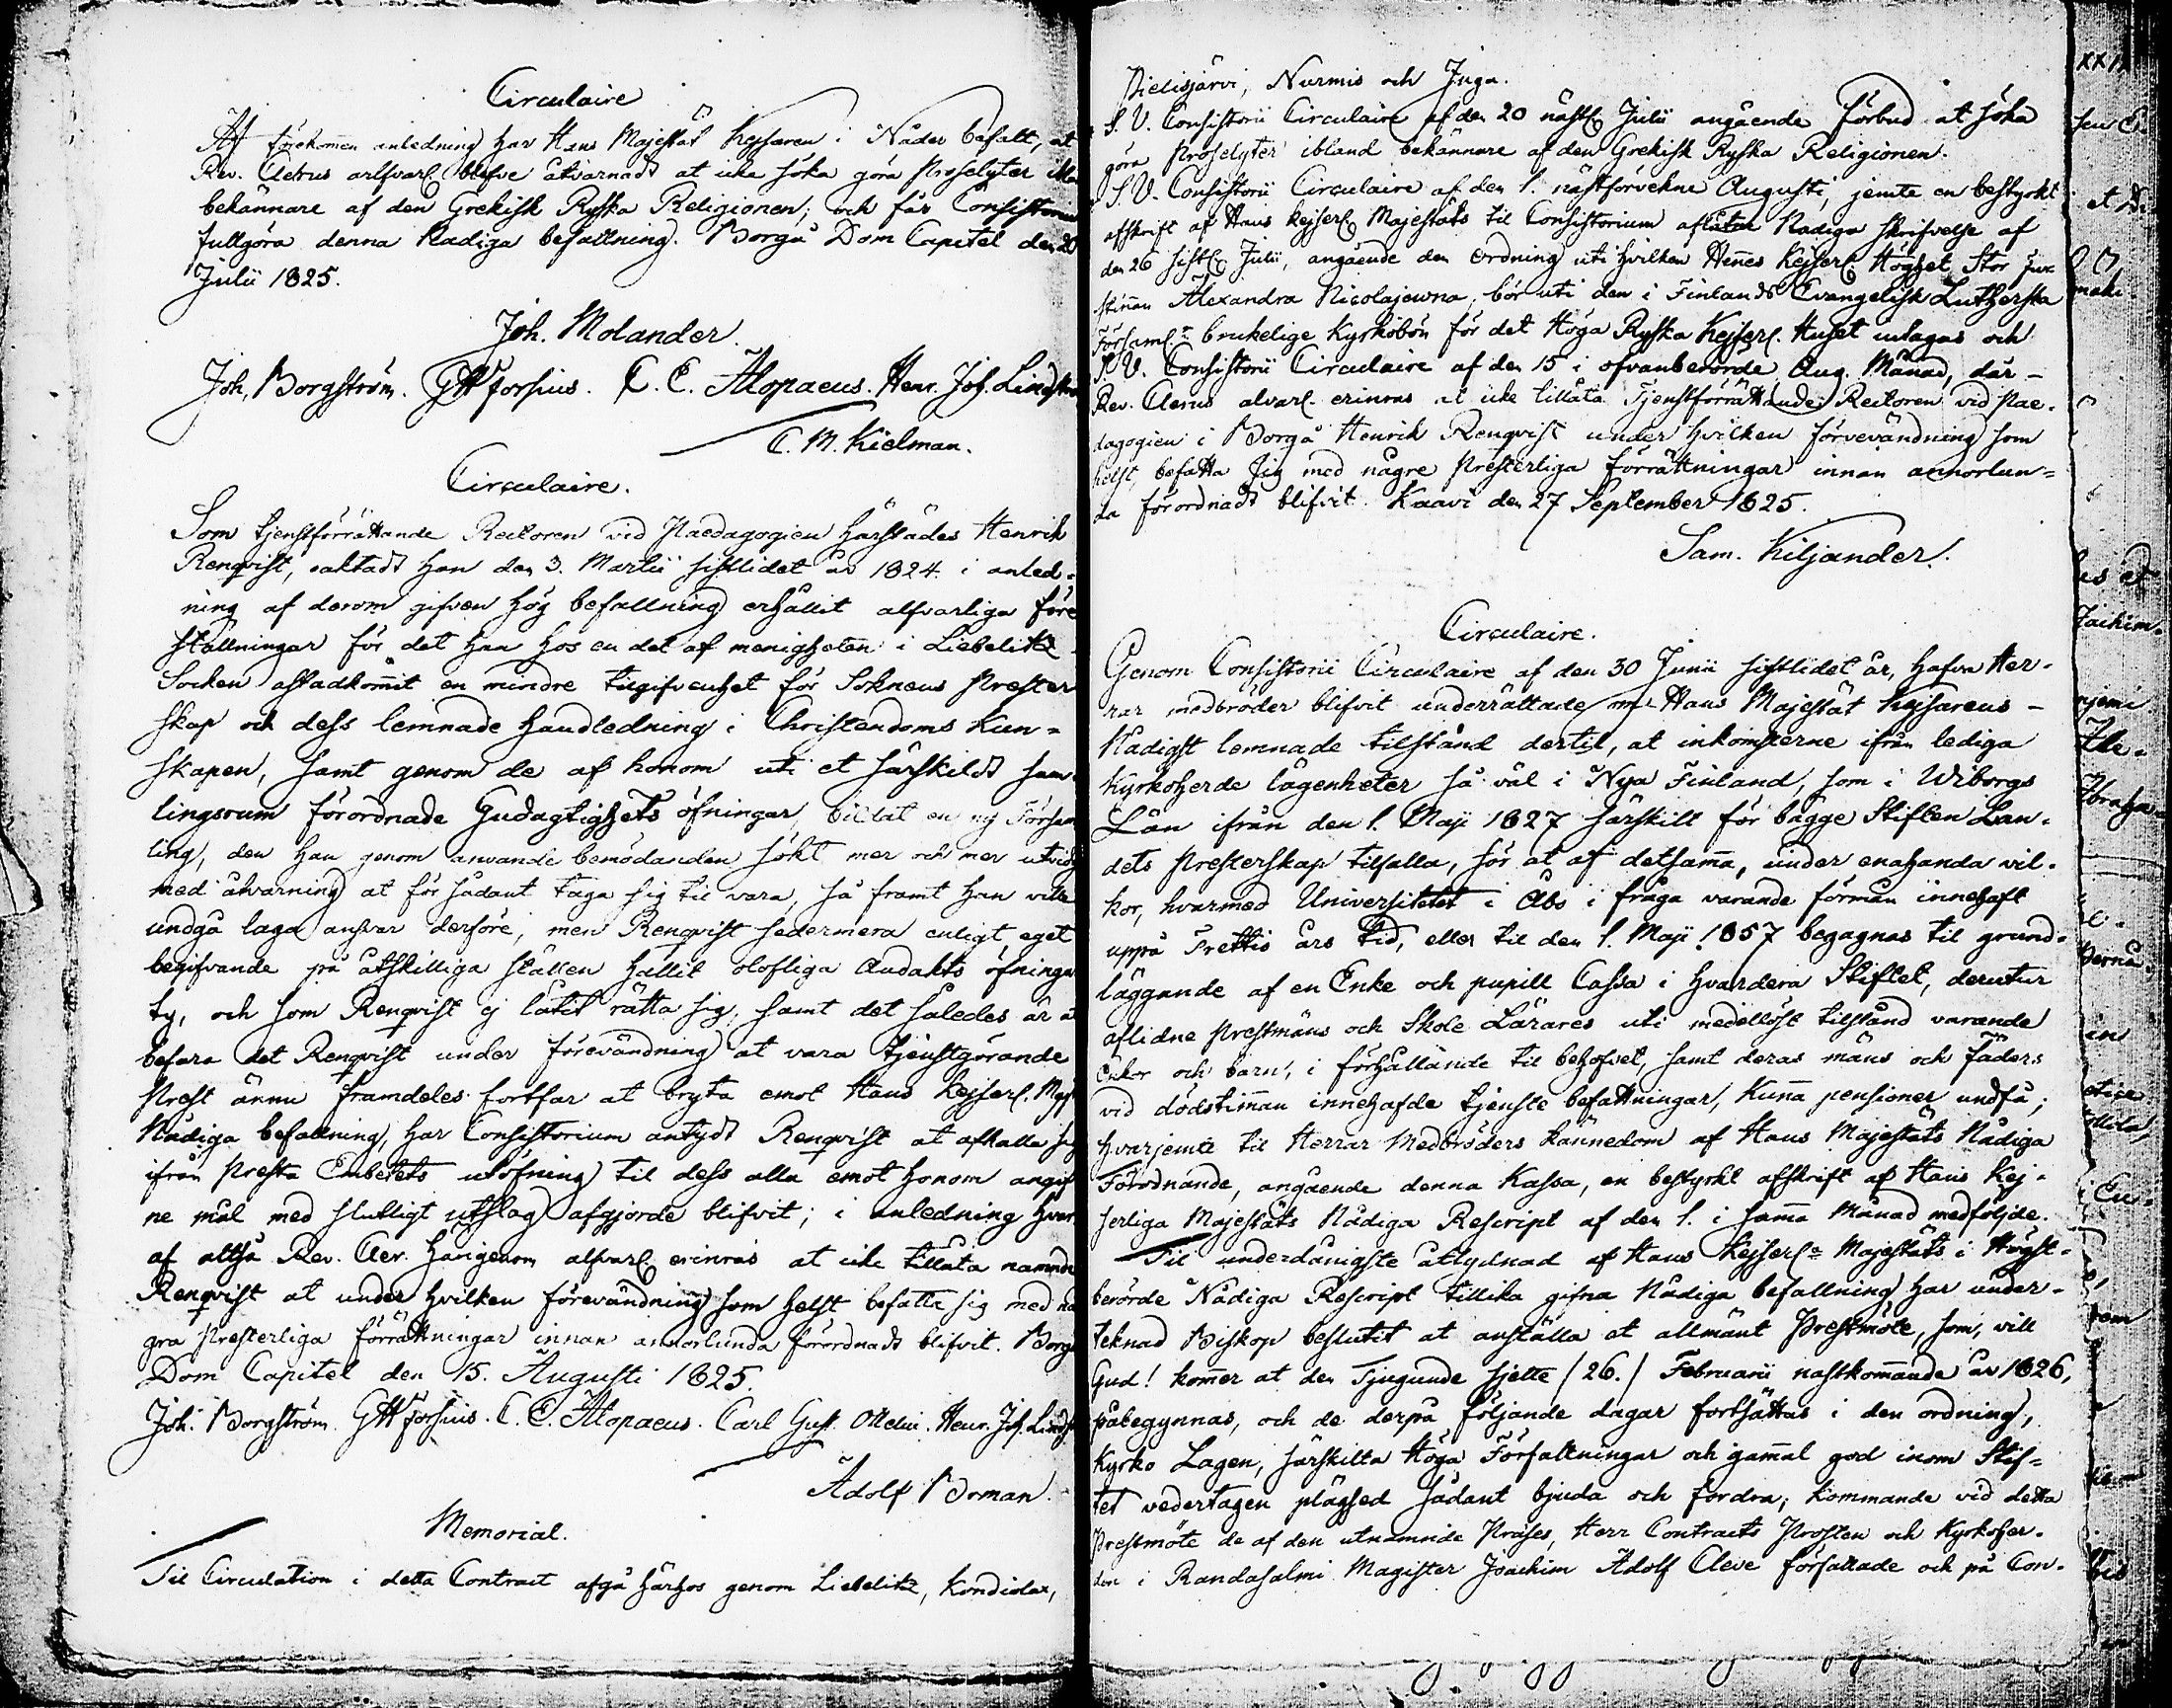 Circulaire
Af förekommen anledning har Hans Majestät Kejsaren i Nåder befalt, at
Rev. Clerus alfvarl. blefve åtvarnadt at icke söka göra Proselyter
bekännare af den Grekisk Ryska Religionen; och får Consistorium
fullgöra denna Nådiga befallning. Borgå Dom Capitel den 20
Julii 1825.
Joh. Molander.
Joh. Borgström. GW Forsius. C. E. Alopaeus. Henr. Joh. Lindström
C. M. Kielman.
Circulaire.
Som tjenstförrättande Rectoren vid Paedagogien härstädes Henrik
Renqvist, oaktadt han den 3. Martii sistlidet år 1824. i anled-
ning af derom gifven hög befallning erhållit alfvarliga före
ställningar för det han hos en del af menigheten i Liebelitz
Socken åstadkommit en mindre tilgifvenhet för Soknens Prester
skap och dess lemnade handledning i Christendoms Kun-
skapen, samt genom de af honom uti et särskildt sam-
lingsrum förordnade Gudagtighets öfningar, bildat en ny Försam
ling, den han genom använde bemödanden sökt mer och mer utvidg
med åtvarning at för sådant taga sig til vara, så framt han ville
undgå laga ansvar derföre, men Renqvist sedermera enligt eget
begifvande på åtskilliga ställen hållit olofliga Andakts öfninga
ty, och som Renqvist ej låtit rätta sig, samt det således är a
befara det Renqvist under förevändning at vara tjenstgörande
Prest ännu framdeles fortfar at bryta emot Hans Kejserl. Maj
Nådiga befallning, har Consistorium antydt Renqvist at afhålla sig
ifrån Presta Embetets utöfning til dess alla emot honom angif
ne mål med slutligt utslag afgjorde blifvit; i anledning hvar
af altså Rev. Cler. härigenom alfvarl. erinras at icke tillåta nämnde
Renqvist at under hvilken förevändning som helst befatta sig med nå
gra Presterliga förrättningar innan annorlunda förordnadt blifvit. Borgå
Dom Capitel den 15. Augusti 1825.
Joh. Borgström. GW Forsius. C. E. Alopaeus. Carl Gust. Ottelin. Henr. Joh. Lindst
Adolf Borman.
Memorial.
Til Circulation i detta Contract afgå härhos genom Liebelitz, Kondiolax,
Pielisjärvi, Nurmis och Juga.
S. V. Consistorii Circulaire af den 20 nästl. Julii angående förbud at söka
göra Proselyter ibland bekännare af den Grekisk Ryska Religionen.
S. V. Consistorii Circulaire af den 1. nästförvekne Augusti, jemte en bestyrkt
afskrift af Hans Kejserl. Majestäts til Consistorium aflåtne Nådiga skrifvelse af
den 26 sistl. Julii, angående den Ordning uti hvilken Hennes Kejserl. Höghet Stor Fur-
stinnan Alexandra Nicolajewna, bör uti den i Finlands Evangelisk Lutherska
Församl:r brukelige Kyrkobön för det Höga Ryska Kejserl. Huset intagas och
S. V. Consistorii Circulaire af den 15 i ofvanberörde Aug. Månad, där-
Rev. Clerus alvarl. erinras at icke tillåta Tjenstförrättande Rectoren vid Pae-
dagogien i Borgå Henrik Renqvist under hvilken förevändning som
helst, befatta sig med någre Presterliga förrättningar innan annorlun-
da förordnadt blifvit. Kaavi den 27 September 1825.
Sam. Kiljander.
Circulaire.
Genom Consistorii Circulaire af den 30 Junii sistlidet år, hafva Her-
rar medbröder blifvit underrättade om Hans Majestät Kejsarens -
Nådigst lemnade tilstånd dertil, at inkomsterne ifrån lediga
Kyrkoherde lägenheter så väl i Nya Finland, som i Wiborgs
Län ifrån den 1. Maji 1827 särskilt för bägge Stiften Lan-
dets Presterskap tilfalla, för at af detsamma, under enahanda vil-
kor, hvarmed Universitetet i Åbo i fråga varande förmån innehaft
uppå Trettio års tid, eller til den 1. Maji 1857 begagnas til grund-
läggande af en Enke och pupill Cassa i hvardera Stiftet, derutur
aflidne Prestmäns och Skole Lärares uti medellöst tilstånd varande
Enkor och barn, i förhållande til behofvet, samt deras mäns och fäders
vid dödstimman innehafde tjenste befattningar, Kunna pensioner undfå;
hvarjemte til Herrar Medbröders kännedom af Hans Majestäts Nådiga
Förordnande, angående denna Kassa, en bestyrkt afskrift af Hans Kej-
serliga Majestäts Nådiga Rescript af den 1. i samma Månad medföljde.
Til underdånigste åtlydnad af Hans Kejserl:a Majestäts i Högst-
berörde Nådiga Rescript tillika gifna Nådiga befallning har under-
teknad Biskop beslutit at anställa et allmänt Prestmöte, som, vill
Gud! kommer at den Tjugunde sjette /26./ Februarii nästkommande år 1826,
påbegynnas, och de derpå följande dagar fortsättas i den ordning,
Kyrko Lagen, särskilta Höga Författningar och gammal god inom Stif-
tet vedertagen plägsed sådant bjuda och fordra; Kommande vid detta
Prestmöte de af den utnämnde Præses, Herr Contracts Prosten och Kyrkoher-
den i Randasalmi Magister Joachim Adolf Cleve författade och på Con-